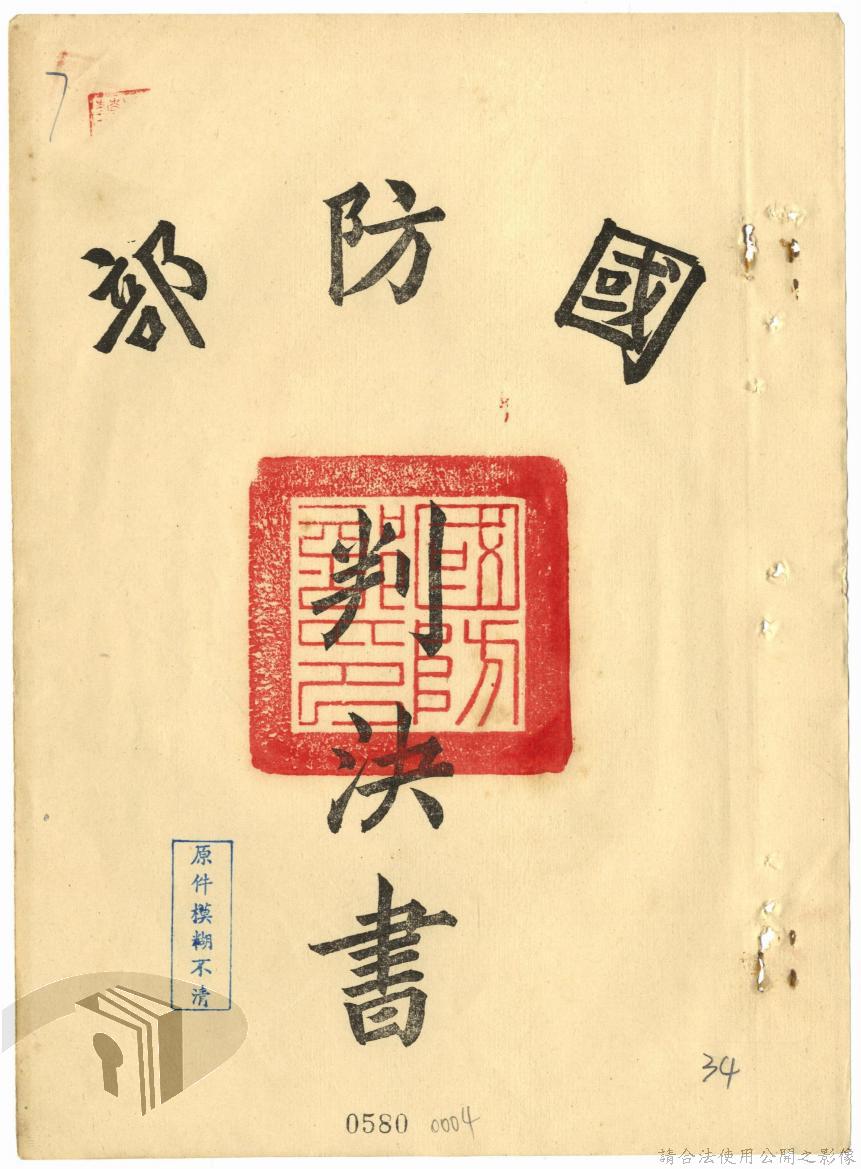 7
國防部
判決書
國防部印
原件模糊不清
34
0580 0004
請合法使用公開之影像